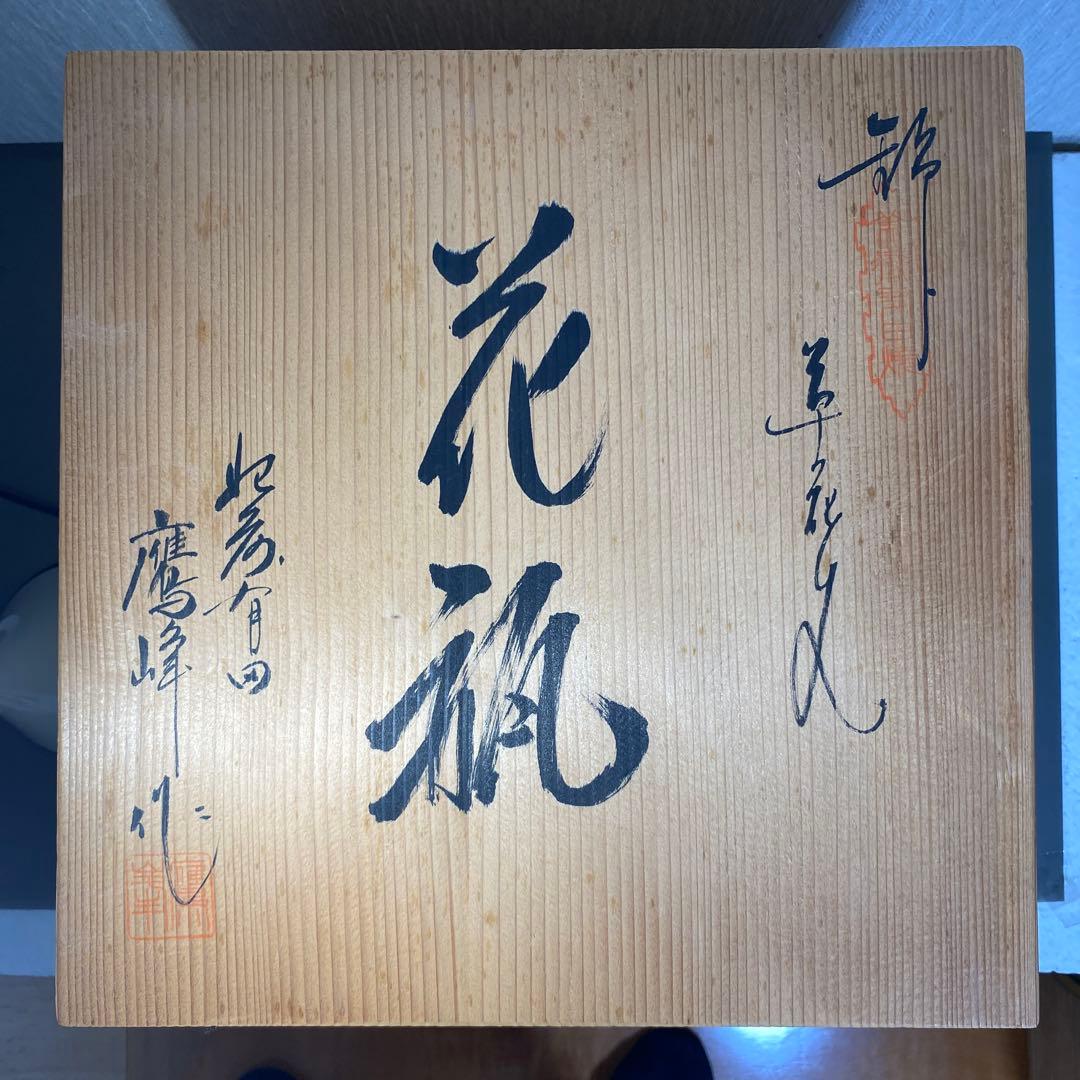 錦
草花文
花瓶
肥前有田
鷹峰作